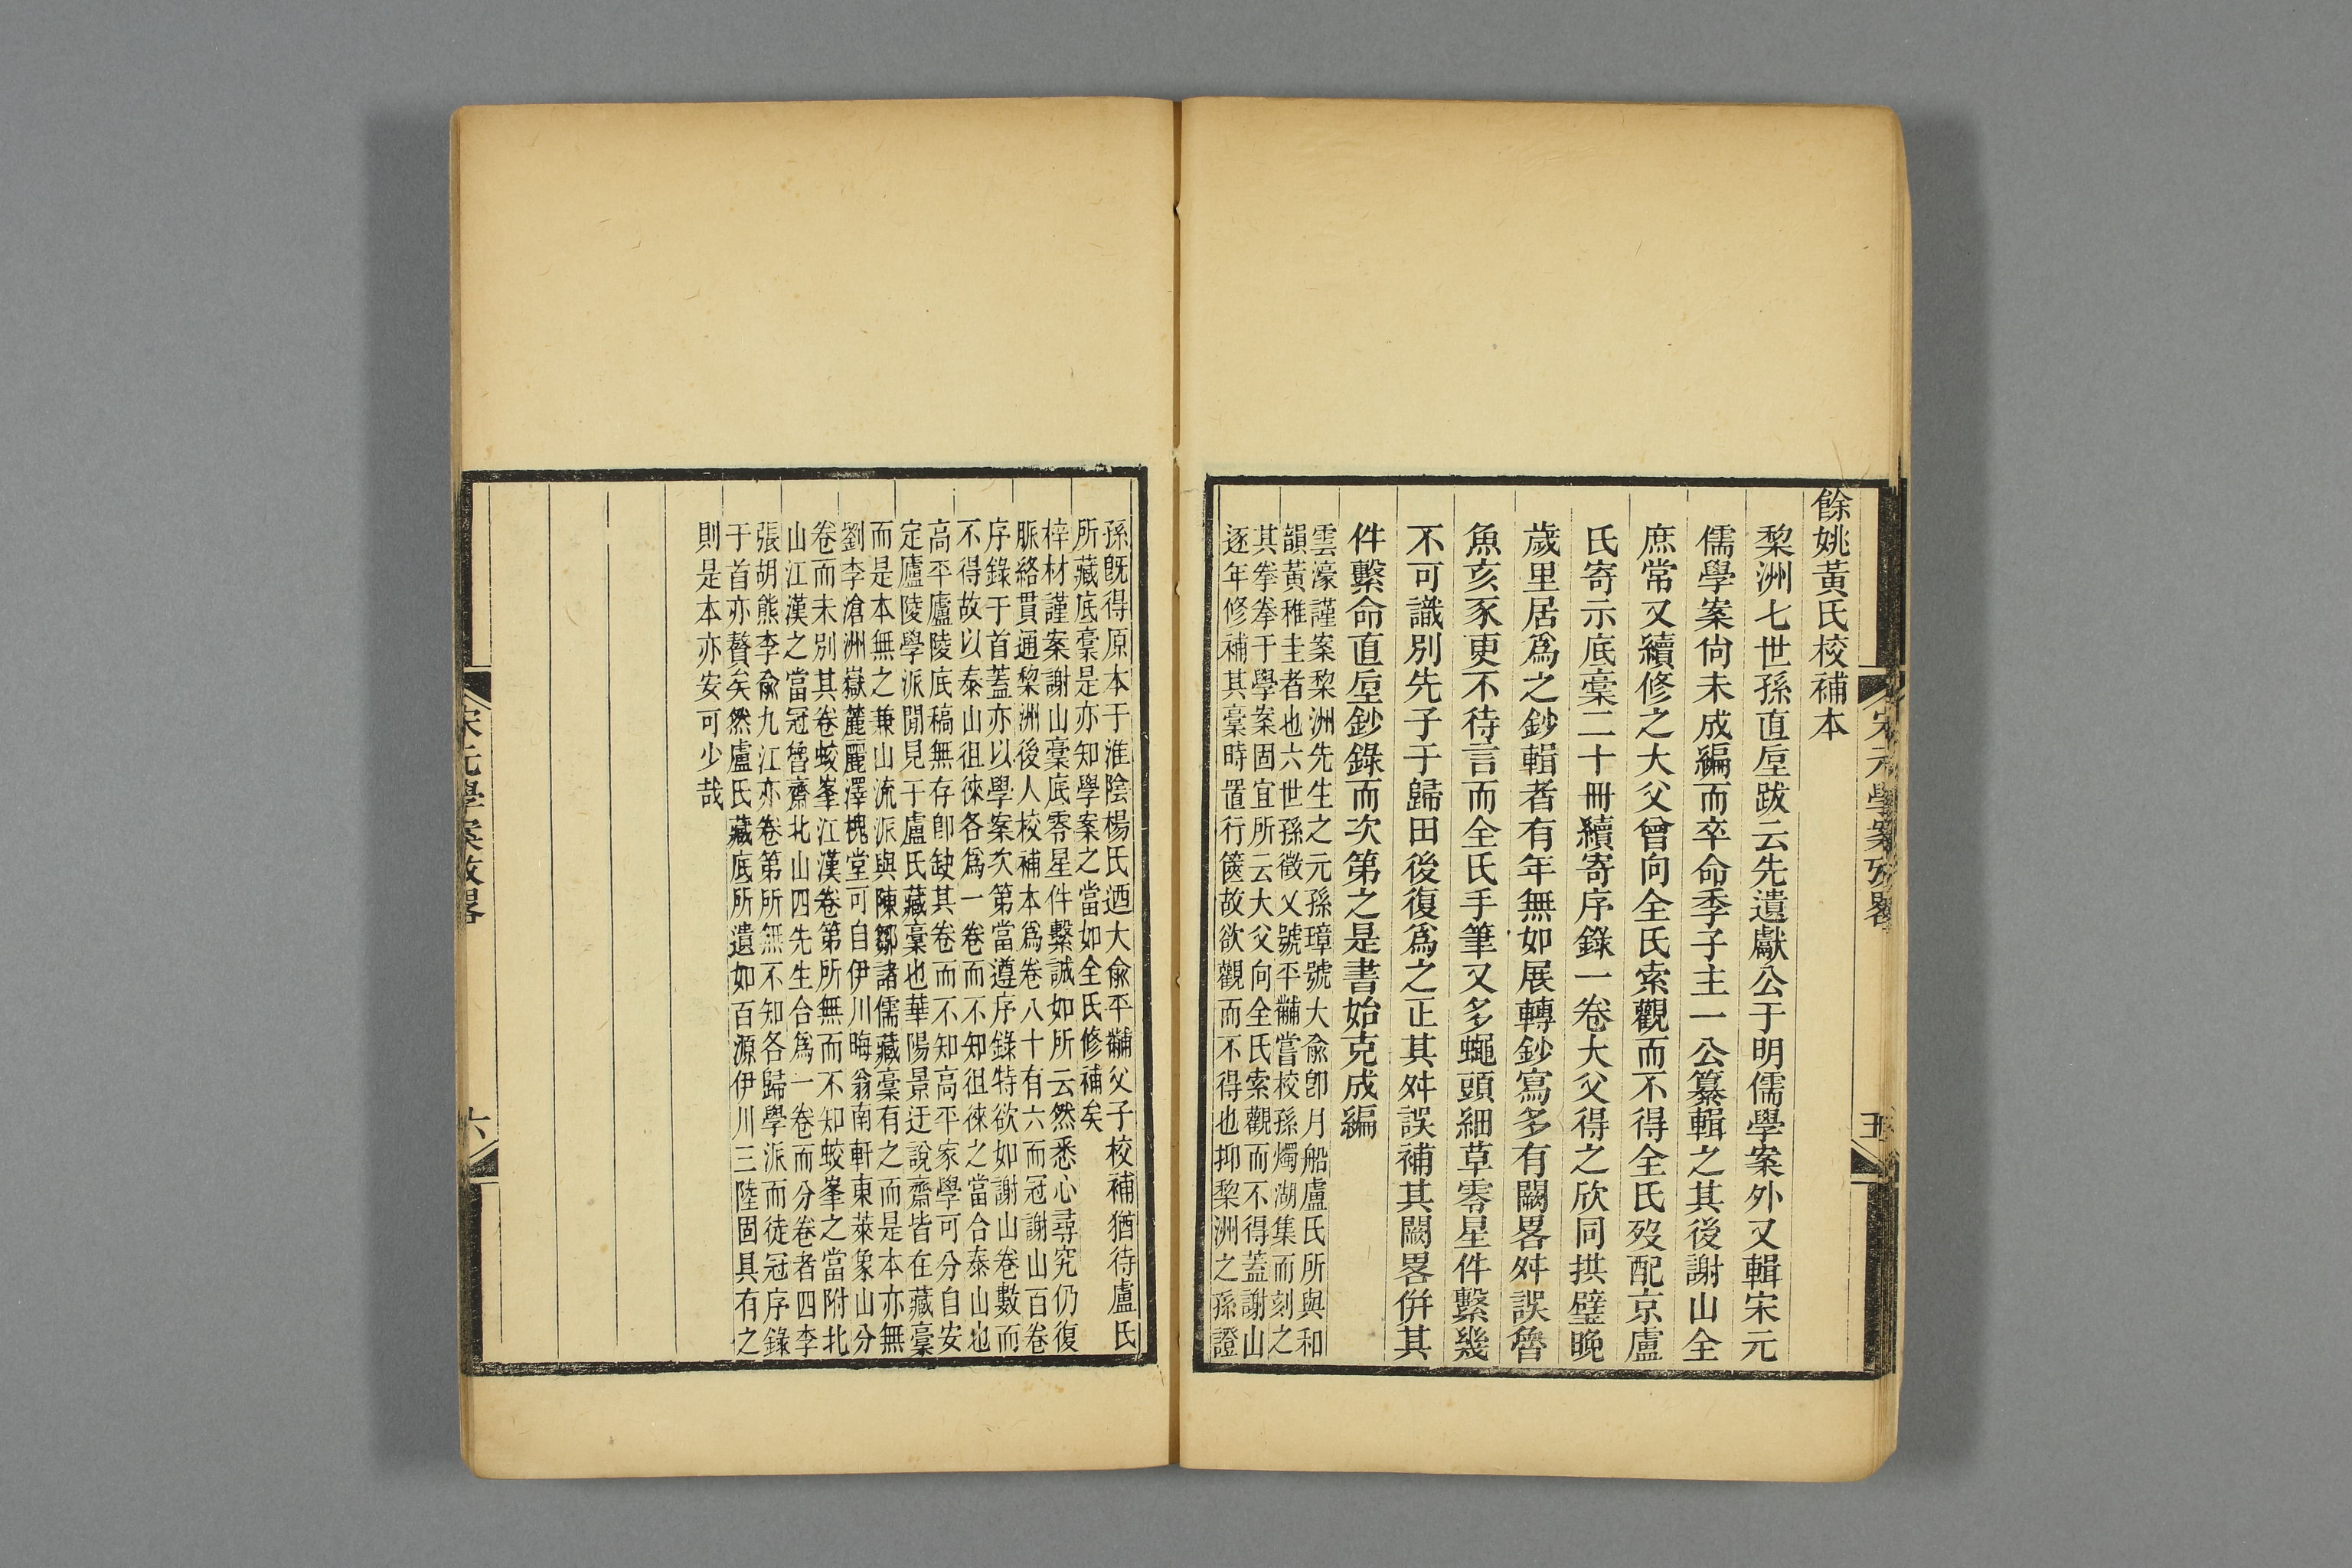 餘姚黃氏校補本
黎洲七世孫直垕跋云先遺獻公于明儒學案外又輯宋元
儒學案尙未成編而卒命季子主一公纂輯之其後謝山全
庶常又續修之大父曾向全氏索觀而不得全氏歿配京盧
氏寄示底稾二十冊續寄序錄一卷大父得之欣同拱璧晚
歲里居爲之鈔輯者有年無如展轉鈔寫多有闕畧舛誤魯
魚亥豕更不待言而全氏手筆又多蠅頭細草零星件繫幾
不可識別先子于歸田後復爲之正其舛誤補其闕畧併其
件繫命直垕鈔錄而次第之是書始克成編
雲濠謹案黎洲先生之元孫璋號大俞卽月船盧氏所與和
韻黃稚圭者也六世孫徵乂號平黼嘗校孫燭湖集而刻之
其拳拳于學案固宜所云大父向全氏索觀而不得蓋謝山
逐年修補其稾時置行篋故欲觀而不得也抑黎洲之孫證
孫旣得原本于淮陰楊氏迺大俞平黼父子校補猶待盧氏
所藏底稾是亦知學案之當如全氏修補矣
梓材謹案謝山稾底零星件繫誠如所云然悉心尋究仍復
脈絡貫通黎洲後人校補本爲卷八十有六而冠謝山百卷
序錄于首蓋亦以學案次第當遵序錄特欲如謝山卷數而
不得故以泰山徂徠各爲一卷而不知徂徠之當合泰山也
高平廬陵底稿無存卽缺其卷而不知高平家學可分自安
定廬陵學派閒見于盧氏藏稾也華陽景迂說齋皆在藏稾
而是本無之兼山流派與陳鄒諸儒藏稾有之而是本亦無
劉李滄洲嶽麓麗澤槐堂可自伊川晦翁南軒東萊象山分
卷而未別其卷蛟峯江漢卷第所無而不知蛟峯之當附北
山江漢之當冠魯齋北山四先生合爲一卷而分卷者四李
張胡熊李俞九江亦卷第所無不知各歸學派而徒冠序錄
于首亦贅矣然盧氏藏底所遺如百源伊川三陸固具有之
則是本亦安可少哉
宋元學案攷畧
五
宋元學案攷畧
六